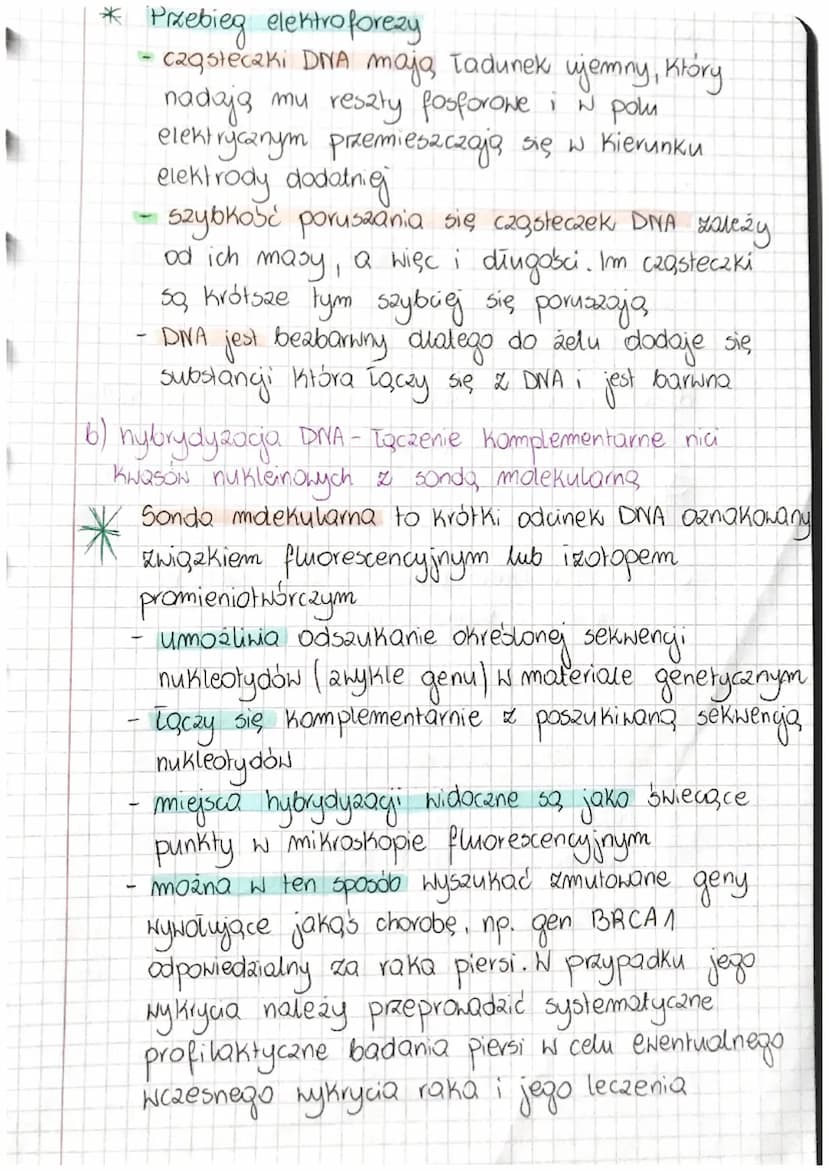 * Przebieg elektroforezy
- cząsteczki DNA mają ładunek ujemny, który
nadają mu reszty fosforowe i w polu
elektrycznym przemieszczają się w kierunku
elektrody dodatniej
- szybkość poruszania się cząsteczek DNA zależy
od ich masy, a więc i długości. Im cząsteczki
są krótsze tym szybciej się poruszają
- DNA jest bezbarwny dlatego do żelu dodaje się
substancji która łączy się z DNA i jest barwna
b) hybrydyzacja DNA - łączenie komplementarne nici
kwasów nukleinowych z sondą molekularną
* Sonda molekularna to krótki odcinek DNA oznakowany
związkiem fluorescencyjnym lub izotopem
promieniotwórczym
- umożliwia odszukanie określonej sekwencji
nukleotydów (zwykle genu) w materiale genetycznym
- łączy się komplementarnie z poszukiwaną sekwencją
nukleotydów
- miejsca hybrydyzacji widoczne są jako świecące
punkty w mikroskopie fluorescencyjnym
- można w ten sposób wyszukać zmutowane geny
wywołujące jakąś chorobę, np. gen BRCA1
odpowiedzialny za raka piersi. W przypadku jego
wykrycia należy przeprowadzić systematyczne
profilaktyczne badania piersi w celu ewentualnego
wczesnego wykrycia raka i jego leczenia